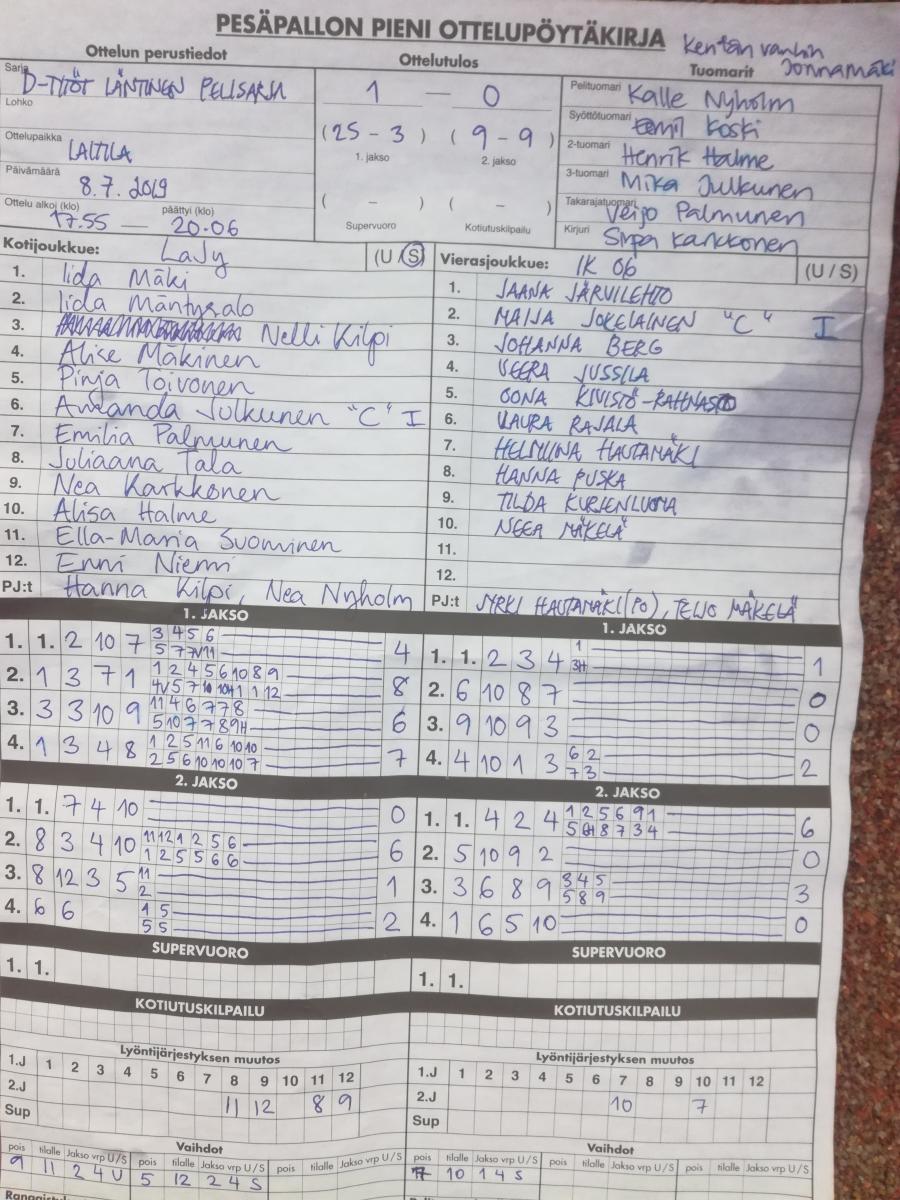 PESÄPALLON PIENI OTTELUPÖYTÄKIRJA
Kentän vanhin
Jonnamäki
Ottelun perustiedot
Ottelutulos
Tuomarit
Sarja D-TYTÖT LÄNTINEN PELISARJA
Lohko
Ottelupaikka LAITILA
Päivämäärä 8.7.2019
Ottelu alkoi (klo) päättyi (klo)
17.55 — 20.06
1 — 0
(25 - 3) (9 - 9)
1. jakso 2. jakso
( - ) ( - )
Supervuoro Kotiutuskilpailu
Pelituomari Kalle Nyholm
Syöttötuomari Eemil Koski
2-tuomari Henrik Halme
3-tuomari Mika Julkunen
Takarajatuomari Veijo Palmunen
Kirjuri Sirpa Karkkonen
Kotijoukkue: LaJy (U / S)
1. Iida Mäki
2. Iida Mäntysalo
3. Nelli Kilpi
4. Alise Mäkinen
5. Pinja Toivonen
6. Amanda Julkunen "C" I
7. Emilia Palmunen
8. Juliaana Tala
9. Nea Karkkonen
10. Alisa Halme
11. Ella-Maria Suominen
12. Enni Niemi
PJ:t Hanna Kilpi, Nea Nyholm
Vierasjoukkue: IK 06 (U / S)
1. JAANA JÄRVILEHTO
2. MAIJA JOKELAINEN "C" I
3. JOHANNA BERG
4. VEERA JUSSILA
5. OONA KIVISTÖ-RAHNASTO
6. LAURA RAJALA
7. HELMIINA HAUTAMÄKI
8. HANNA PUSKA
9. TILDA KURJENLUOMA
10. NEEA MÄKELÄ
11.
12.
PJ:t JYRKI HAUTAMÄKI (PO), TEIJO MÄKELÄ
1. JAKSO
1. 1. 2 10 7 3 4 5 6 4
5 7 7V 11
2. 1 3 7 1 1 2 4 5 6 10 8 9 8
4V 5 7 10 10H 1 1 12
3. 3 3 10 9 11 4 6 7 7 8 6
5 10 7 7 8 9H
4. 1 3 4 8 1 2 5 11 6 10 10 7
2 5 6 10 10 10 7
1. JAKSO
1. 1. 2 3 4 1 1
3H
2. 6 10 8 7 0
3. 9 10 9 3 0
4. 4 10 1 3 6 2 2
7 3
2. JAKSO
1. 1. 7 4 10 0
2. 8 3 4 10 11 12 1 2 5 6 6
1 2 5 5 6 6
3. 8 12 3 5 11 1
2
4. 6 6 1 5 2
5 5
2. JAKSO
1. 1. 4 2 4 1 2 5 6 9 1 6
5 6H 8 7 3 4
2. 5 10 9 2 0
3. 3 6 8 9 3 4 5 3
5 8 9
4. 1 6 5 10 0
SUPERVUORO
1. 1.
SUPERVUORO
1. 1.
KOTIUTUSKILPAILU
KOTIUTUSKILPAILU
Lyöntijärjestyksen muutos
1.J 1 2 3 4 5 6 7 8 9 10 11 12
2.J 11 12 8 9
Sup
Lyöntijärjestyksen muutos
1.J 1 2 3 4 5 6 7 8 9 10 11 12
2.J 10 7
Sup
Vaihdot
pois tilalle Jakso vrp U/S pois tilalle Jakso vrp U/S pois tilalle Jakso vrp U/S
9 11 2 4 U 5 12 2 4 S
Vaihdot
pois tilalle Jakso vrp U/S pois tilalle Jakso vrp U/S pois tilalle Jakso vrp U/S
7 10 1 4 S